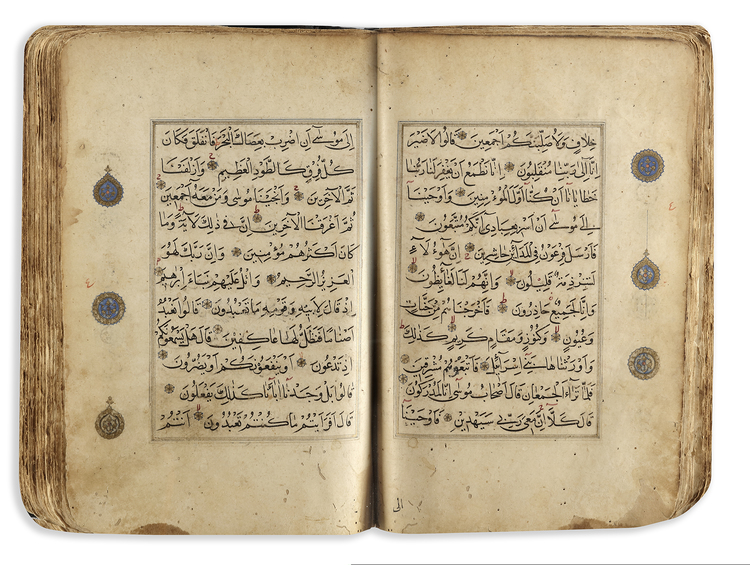 خلاف ولاصلبنكم اجمعين قالوا لاضير
انا الى ربنا منقلبون انا نطمع ان يغفر لنا ربنا
خطايانا ان كنا اول المومنين واوحينا
الى موسى ان اسر بعبادى انكم متبعون
فارسل فرعون فى المدائن حاشرين ان هؤلاء
لشرذمة قليلون وانهم لنا لغائظون
وانا لجميع حاذرون فاخرجناهم من جنات
وعيون وكنوز ومقام كريم كذلك
واورثناها بنى اسرائيل فاتبعوهم مشرقين
فلما تراء الجمعان قال اصحاب موسى انا لمدركون
قال كلا ان معى ربى سيهدين فاوحينا
الى
الى موسى ان اضرب بعصاك البحر فانفلق فكان
كل فرق كالطود العظيم وازلفنا
ثم الآخرين وانجينا موسى ومن معه اجمعين
ثم اغرقنا الآخرين ان فى ذلك لآية وما
كان اكثرهم مؤمنين وان ربك لهو
العزيز الرحيم واتل عليهم نبأ ابرهيم
اذ قال لابيه وقومه ما تعبدون قالوا نعبد
اصناما فنظل لها عاكفين قال هل يسمعونكم
اذ تدعون او ينفعونكم او يضرون
قالوا بل وجدنا اباءنا كذلك يفعلون
قال افرايتم ما كنتم تعبدون انتم